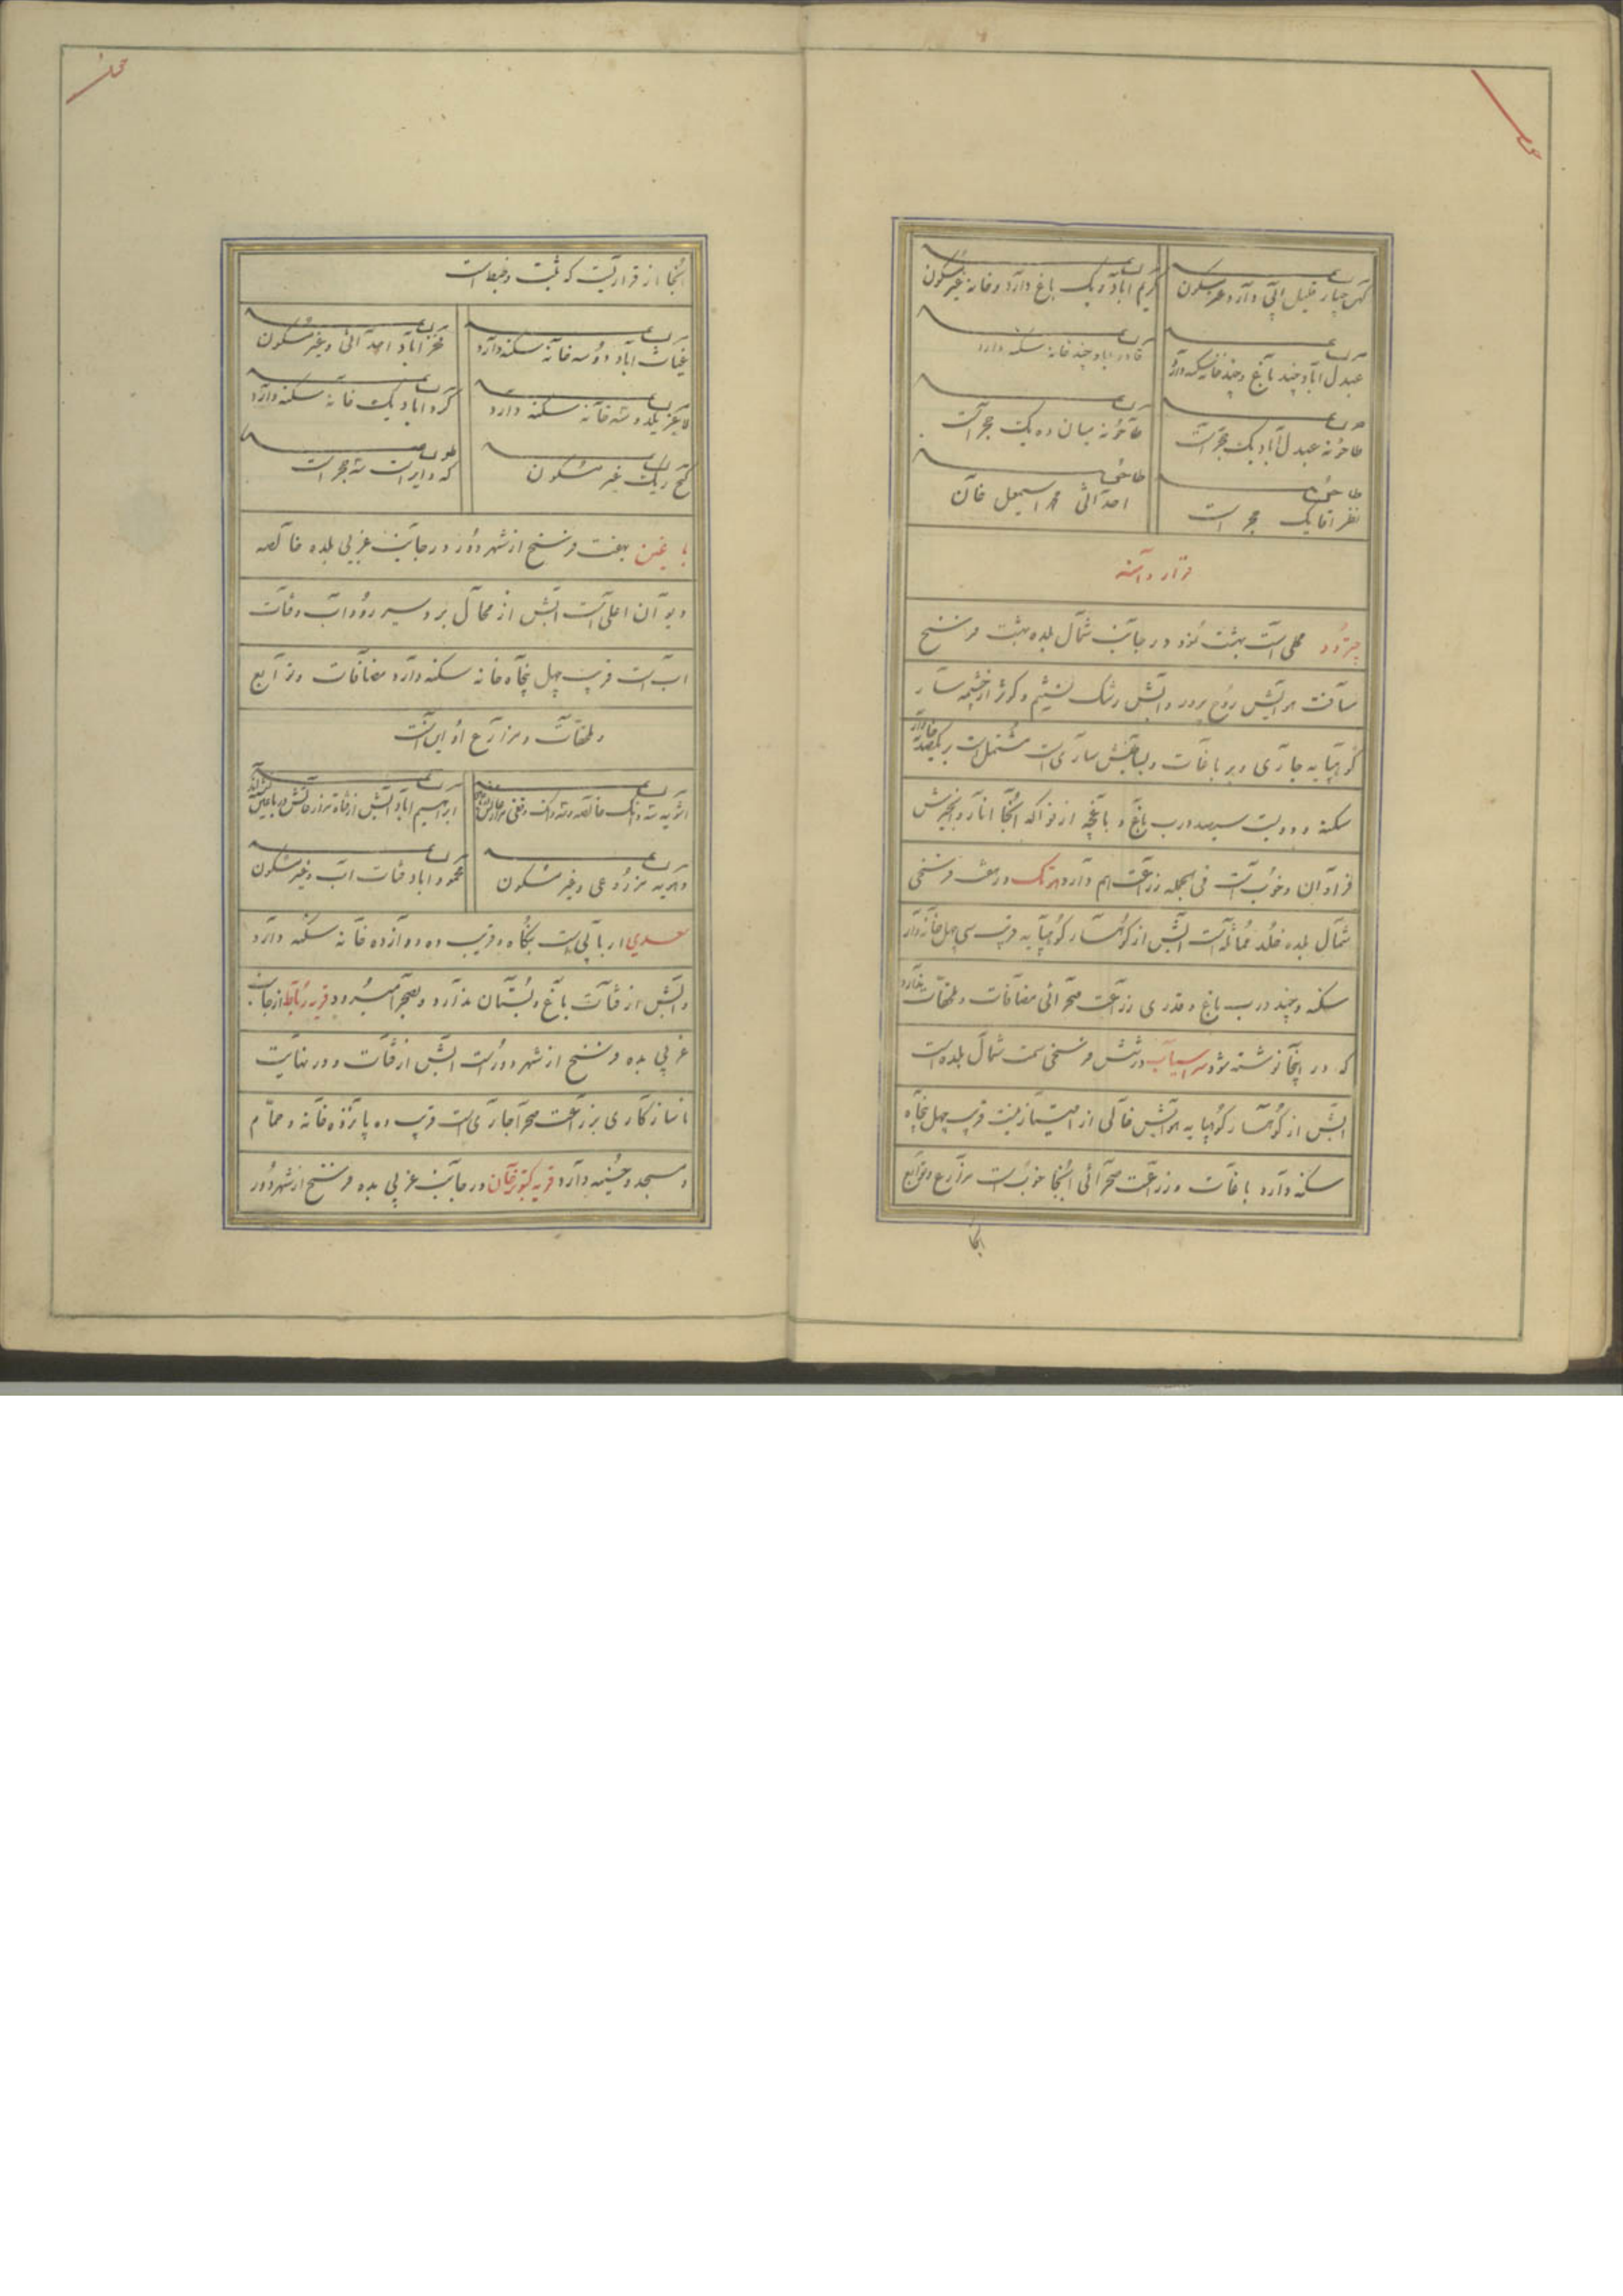 کریم اباد و یک باغ دارد و خانه غیر مسکون
عبدل اباد چند باغ و چند خانه سکنه دارد
قادر اباد چند خانه سکنه دارد
طاحونه عبدل آباد یک حجر است
طاحونه میان ده یک حجر است
طاحونه
نظر اقا یک حجر است
طاحونه
احداثی محمد اسمعیل خان
قرار دامنه
چترود محلی است بهشت نمود در جانب شمال بلده هشت فرسخ
مسافت هوایش روح پرور و آبش رشک تسنیم و کوثر از چشمه سار
کوهپایه جاری و بر باغات و بساتینش ساری است مشتمل است بر یکصد خانه وار
سکنه و دویست سیصد درب باغ و باغچه از فواکه آنجا انار و انجیرش
فراوان و خوب است فی الجمله زراعت هم دارد هوتک در هفت فرسخی
شمال بلده خلد مماثله است آبش از کوهسار کوهپایه قریب سی چهل خانه وار
سکنه و چند درب باغ و قدری زراعت صحرائی مضافات و ملحقات ندارد
که در اینجا نوشته شود سرآسیاب در شش فرسخی سمت شمال بلده است
آبش از کوهسار کوهپایه هوایش خالی از امتیاز نیست قریب چهل پنجاه
سکنه دارد باغات و زراعت صحرائی آنجا خوب است مزارع و توابع
آنجا
آنجا از قراریست که ثبت و ضبط است
غیاث آباد دو سه خانه سکنه دارد
فخر آباد احداثی و غیر مسکون
دو سه خانه سکنه دارد
اباد یک خانه سکنه دارد
گنج ریک غیر مسکون
که دایر است سه حجر است
باغین هفت فرسخ از شهر دور در جانب غربی بلده خالصه
دیوان اعلی است آبش از محال بردسیر رود آب و قنات
آب است قریب چهل پنجاه خانه سکنه دارد مضافات و توابع
و ملحقات و مزارع او این است
ابراهیم اباد آبش از قناة
مزروعی و غیر مسکون
محمود اباد قنات آب و غیر مسکون
سعدی اربابی است بنگاه و قریب ده دوازده خانه سکنه دارد
و آبش از قنات باغ و بستان ندارد و بصحرا میرود قریه رباط از جانب
غربی بلده فرسخ از شهر دور است آبش از قنات و در نهایت
ناسازگاری بزراعت صحرا جاری است قریب ده پانزده خانه و حمام
و مسجد و حسینیه دارد قریه کبوترخان در جانب غربی بلده فرسخ از شهر دور